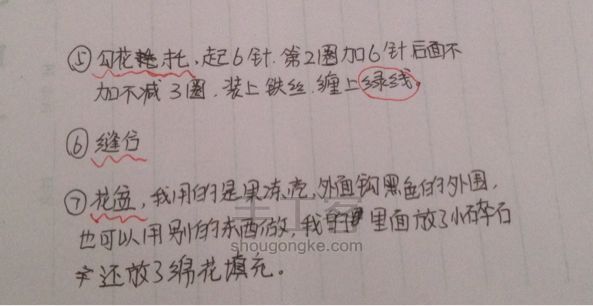 ⑤ 勾花托，起6针.第2圈加6针后面不
加不减3圈.装上铁丝.缠上绿线。
⑥ 缝合
⑦ 花盆，我用的是果冻壳，外面钩黑色的外围，
也可以用别的东西做，我的里面放了小碎石
还放了绵花填充。
shougongke.com